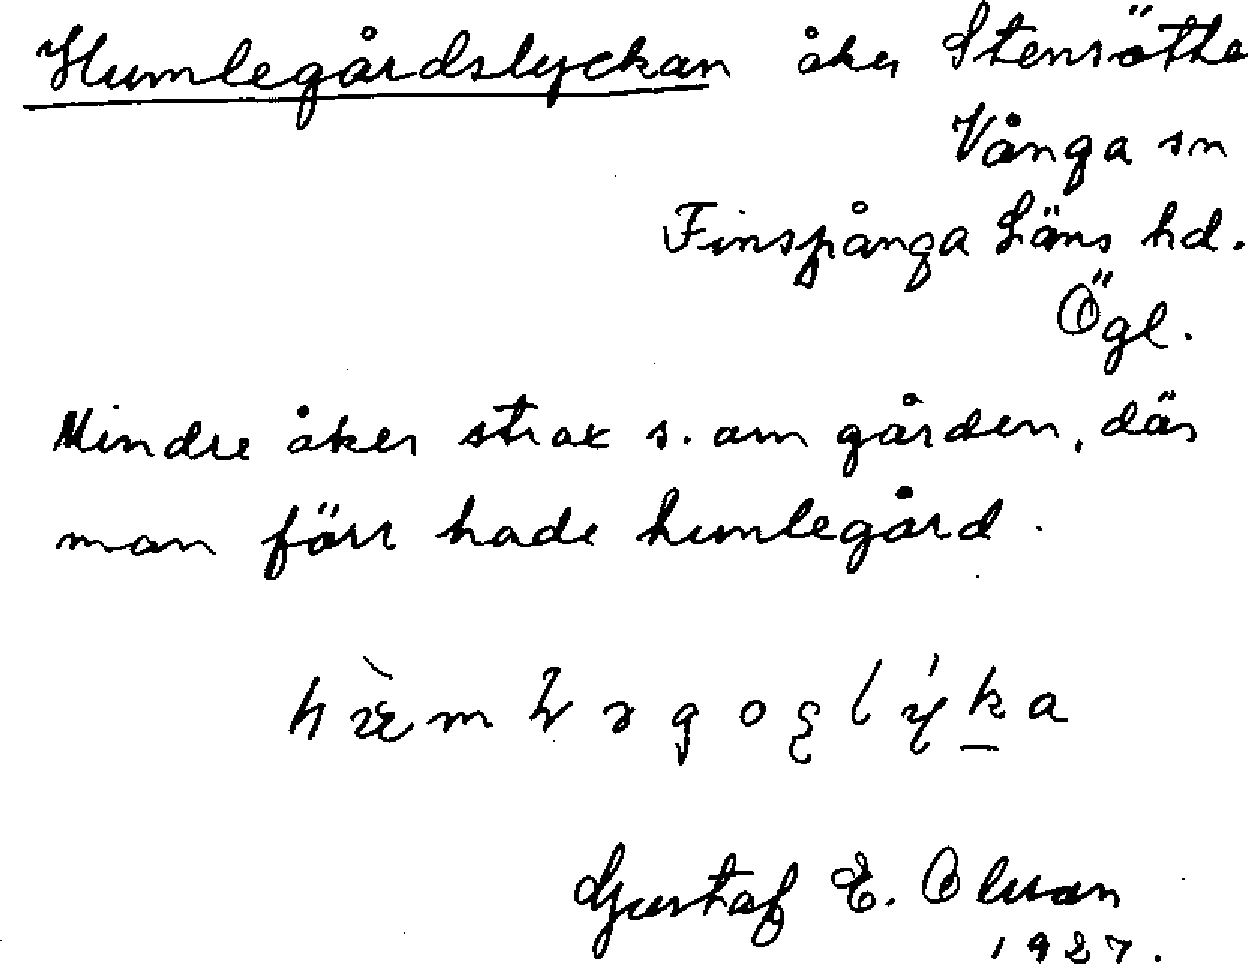 Humlegårdslyckan åker Stensätter
Vånga sn
Finspånga Läns hd.
Ögl.
Mindre åker strax s. om gården, där
man förr hade humlegård.
Gustaf E. Olsson
1927.